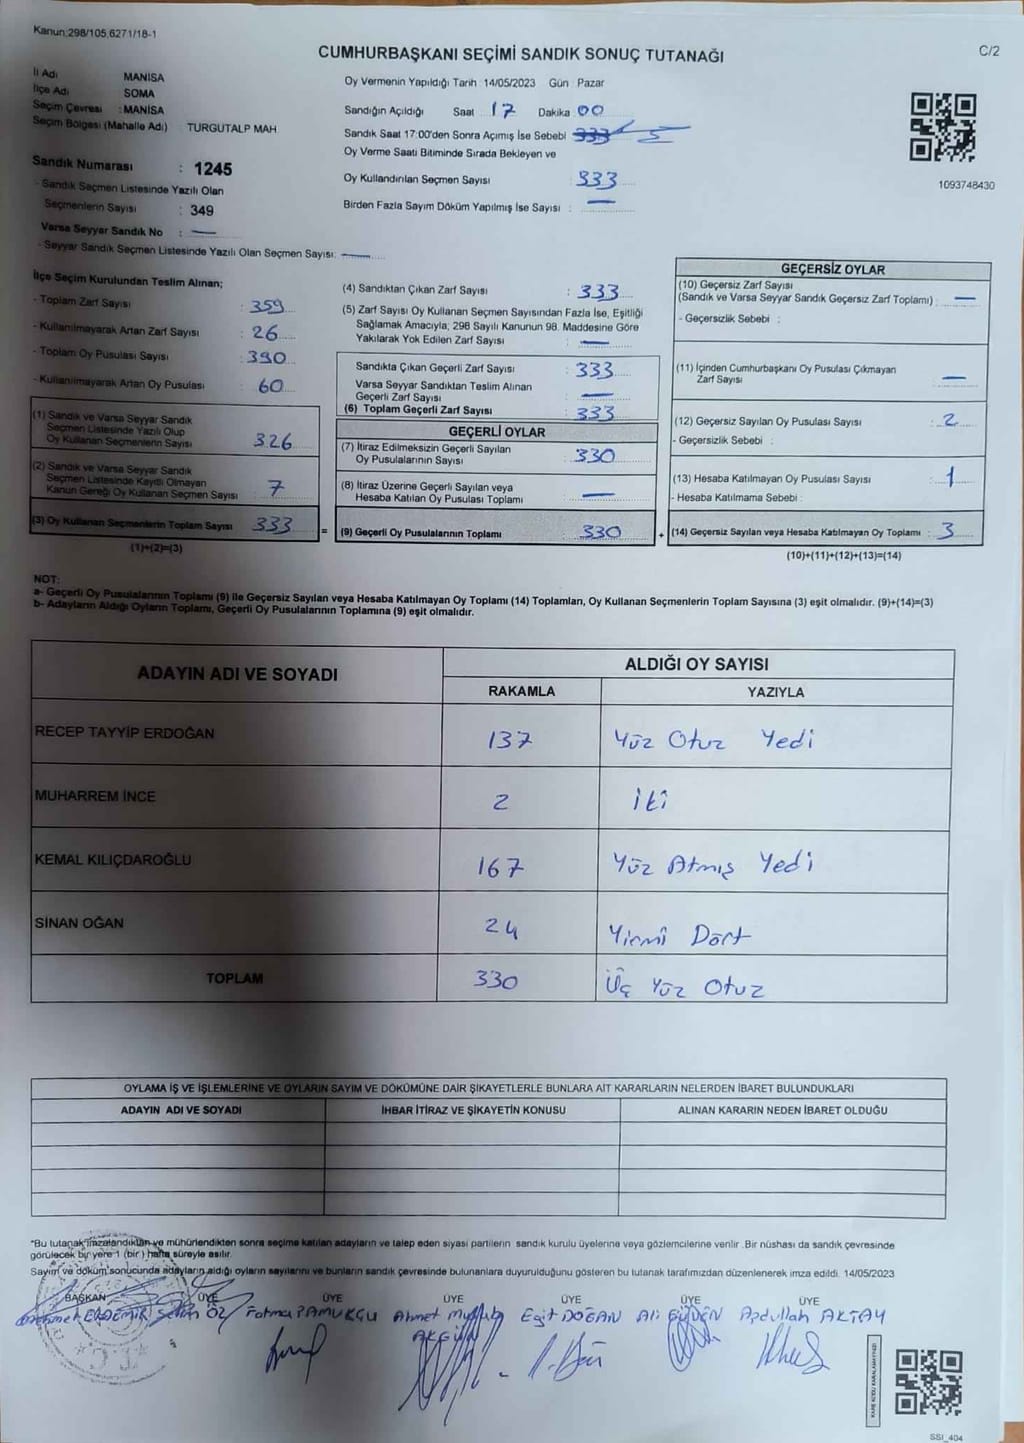 Kanun:298/105,6271/18-1
C/2
CUMHURBAŞKANI SEÇİMİ SANDIK SONUÇ TUTANAĞI
İl Adı MANİSA
İlçe Adı SOMA
Seçim Çevresi : MANİSA
Seçim Bölgesi (Mahalle Adı) TURGUTALP MAH.
Sandık Numarası : 1245
- Sandık Seçmen Listesinde Yazılı Olan
Seçmenlerin Sayısı : 349
Varsa Seyyar Sandık No : —
- Seyyar Sandık Seçmen Listesinde Yazılı Olan Seçmen Sayısı: —
Oy Vermenin Yapıldığı Tarih 14/05/2023 Gün Pazar
Sandığın Açıldığı Saat 17 Dakika 00
Sandık Saat 17:00'den Sonra Açımış İse Sebebi
Oy Verme Saati Bitiminde Sırada Bekleyen ve
Oy Kullandırılan Seçmen Sayısı : 333
Birden Fazla Sayım Döküm Yapılmış İse Sayısı : —
1093748430
İlçe Seçim Kurulundan Teslim Alınan;
- Toplam Zarf Sayısı : 359
- Kullanılmayarak Artan Zarf Sayısı : 26
- Toplam Oy Pusulası Sayısı : 390
- Kullanılmayarak Artan Oy Pusulası : 60
(1) Sandık ve Varsa Seyyar Sandık
Seçmen Listesinde Yazılı Olup
Oy Kullanan Seçmenlerin Sayısı 326
(2) Sandık ve Varsa Seyyar Sandık
Seçmen Listesinde Kayıtlı Olmayan
Kanun Gereği Oy Kullanan Seçmen Sayısı : 7
(3) Oy Kullanan Seçmenlerin Toplam Sayısı 333
(1)+(2)=(3)
(4) Sandıktan Çıkan Zarf Sayısı : 333
(5) Zarf Sayısı Oy Kullanan Seçmen Sayısından Fazla İse, Eşitliği
Sağlamak Amacıyla; 298 Sayılı Kanunun 98. Maddesine Göre
Yakılarak Yok Edilen Zarf Sayısı : —
Sandıkta Çıkan Geçerli Zarf Sayısı : 333
Varsa Seyyar Sandıktan Teslim Alınan
Geçerli Zarf Sayısı : —
(6) Toplam Geçerli Zarf Sayısı : 333
GEÇERLİ OYLAR
(7) İtiraz Edilmeksizin Geçerli Sayılan
Oy Pusulalarının Sayısı : 330
(8) İtiraz Üzerine Geçerli Sayılan veya
Hesaba Katılan Oy Pusulası Toplamı : —
= (9) Geçerli Oy Pusulalarının Toplamı : 330
GEÇERSİZ OYLAR
(10) Geçersiz Zarf Sayısı
(Sandık ve Varsa Seyyar Sandık Geçersiz Zarf Toplamı) : —
- Geçersizlik Sebebi :
(11) İçinden Cumhurbaşkanı Oy Pusulası Çıkmayan
Zarf Sayısı : —
(12) Geçersiz Sayılan Oy Pusulası Sayısı : 2
- Geçersizlik Sebebi :
(13) Hesaba Katılmayan Oy Pusulası Sayısı : 1
- Hesaba Katılmama Sebebi :
+ (14) Geçersiz Sayılan veya Hesaba Katılmayan Oy Toplamı : 3
(10)+(11)+(12)+(13)=(14)
NOT:
a- Geçerli Oy Pusulalarının Toplamı (9) ile Geçersiz Sayılan veya Hesaba Katılmayan Oy Toplamı (14) Toplamları, Oy Kullanan Seçmenlerin Toplam Sayısına (3) eşit olmalıdır. (9)+(14)=(3)
b- Adayların Aldığı Oyların Toplamı, Geçerli Oy Pusulalarının Toplamına (9) eşit olmalıdır.
ADAYIN ADI VE SOYADI
ALDIĞI OY SAYISI
RAKAMLA YAZIYLA
RECEP TAYYİP ERDOĞAN 137 Yüz Otuz Yedi
MUHARREM İNCE 2 İki
KEMAL KILIÇDAROĞLU 167 Yüz Atmış Yedi
SİNAN OĞAN 24 Yirmi Dört
TOPLAM 330 Üç Yüz Otuz
OYLAMA İŞ VE İŞLEMLERİNE VE OYLARIN SAYIM VE DÖKÜMÜNE DAİR ŞİKAYETLERLE BUNLARA AİT KARARLARIN NELERDEN İBARET BULUNDUKLARI
ADAYIN ADI VE SOYADI İHBAR İTİRAZ VE ŞİKAYETİN KONUSU ALINAN KARARIN NEDEN İBARET OLDUĞU
"Bu tutanak imzalandıktan ve mühürlendikten sonra seçime katılan adayların ve talep eden siyasi partilerin sandık kurulu üyelerine veya gözlemcilerine verilir .Bir nüshası da sandık çevresinde
görülecek bir yere 1 (bir ) hafta süreyle asılır.
Sayım ve döküm sonucunda adayların aldığı oyların sayılarını ve bunların sandık çevresinde bulunanlara duyurulduğunu gösteren bu tutanak tarafımızdan düzenlenerek imza edildi. 14/05/2023
BAŞKAN ÜYE ÜYE ÜYE ÜYE ÜYE ÜYE
Mehmet ERDEMİR Selim ÖZ Fatma PAMUKÇU Ahmet Eşit DOĞAN Ali Abdullah AKTAY
T.C.
KARE KODU KARALAMAYINIZ
SSI_404